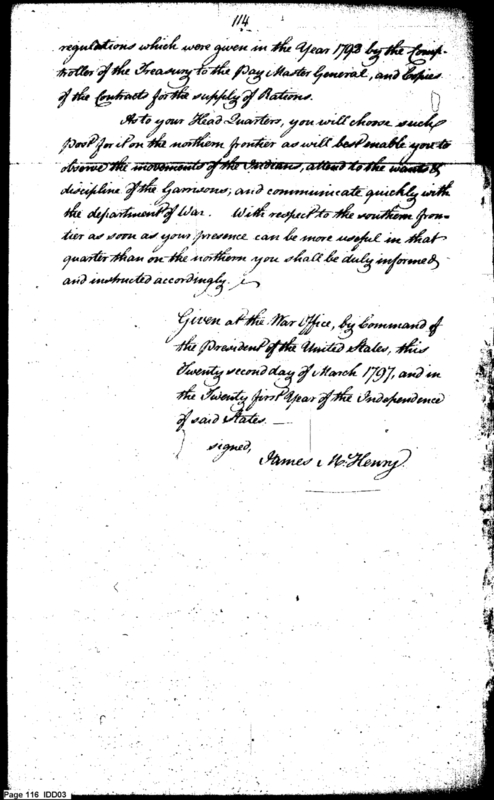 114
regulations which were given in the Year 1793 by the Comp-
troller of the Treasury to the Pay Master General, and Copies
of the Contracts for the supply of Rations.
As to your Head Quarters, you will choose such
Post for it on the northern frontier as will best enable you to
observe the movements of the Indians, attend to the wants &
discipline of the Garrisons, and communicate quickly with
the department of War. With respect to the southern fron-
tier as soon as your presence can be more useful in that
quarter than on the northern you shall be duly informed
and instructed accordingly.
Given at the War Office, by Command of
the President of the United States, this
Twenty second day of March 1797, and in
the Twenty first Year of the Independence
of said States.
signed,
James McHenry.
Page 116 IDD03